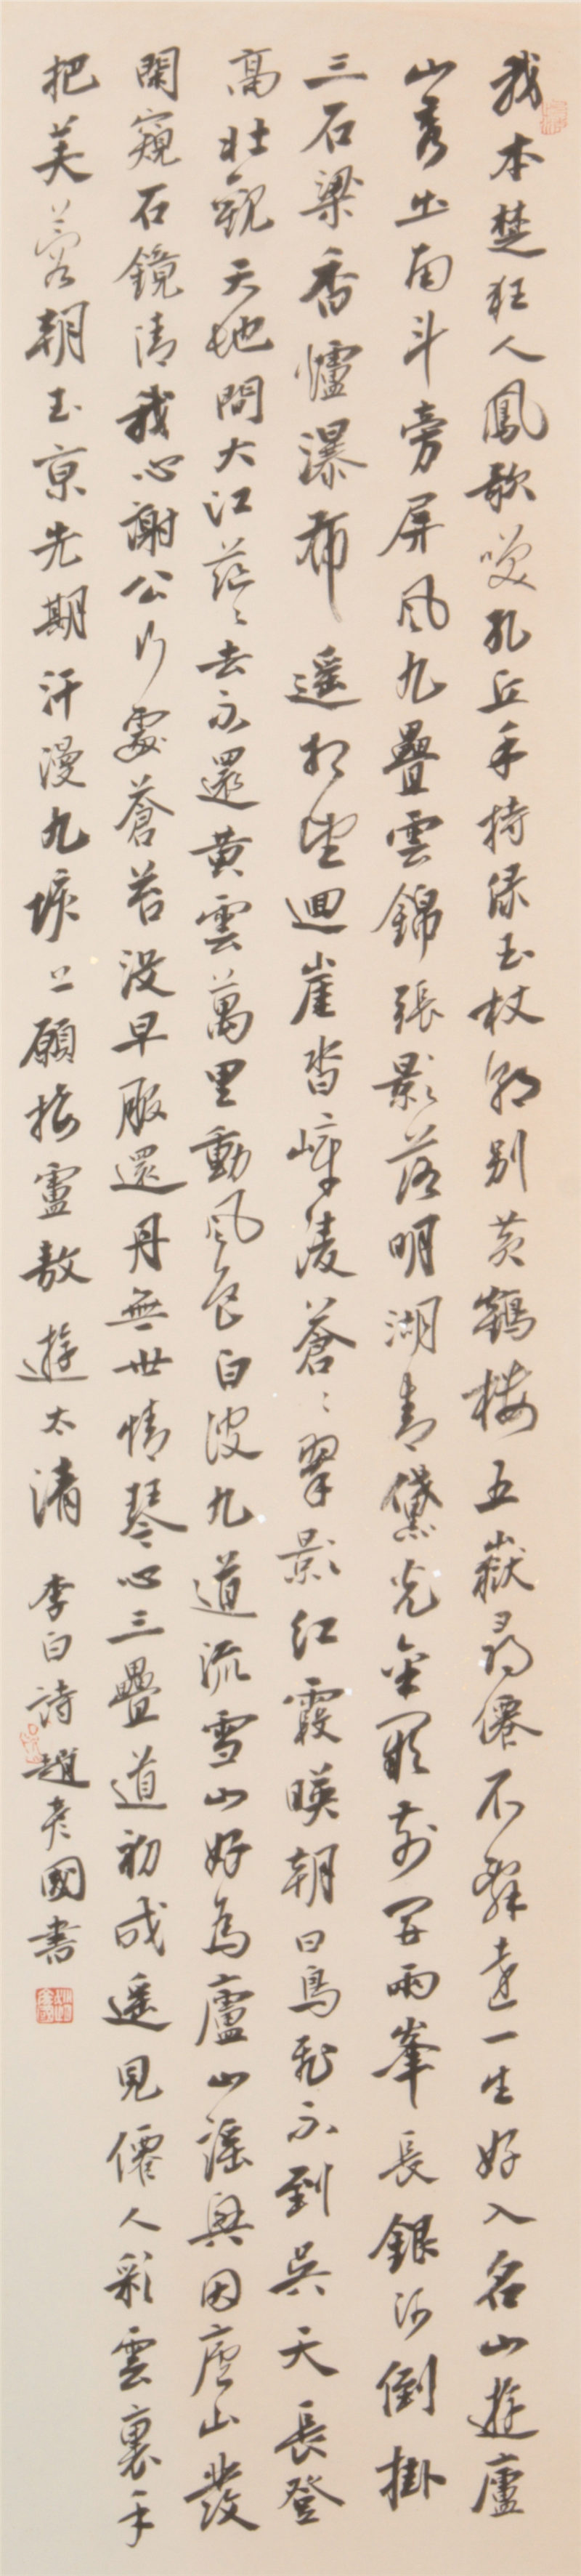 我本楚狂人鳳歌笑孔丘手持綠玉杖朝別黃鶴樓五嶽尋僊不辭遠一生好入名山遊廬
山秀出南斗旁屏風九疊雲錦張影落明湖青黛光金闕前開兩峯長銀河倒掛
三石梁香爐瀑布遥相望迴崖沓嶂淩蒼〻翠影紅霞暎朝日鳥飛不到吳天長登
高壯觀天地間大江茫〻去不還黃雲萬里動風色白波九道流雪山好為廬山謠興因廬山發
閑窺石鏡清我心謝公行處蒼苔沒早服還丹無世情琴心三疊道初成遥見僊人彩雲裏手
把芙蓉朝玉京先期汗漫九垓上願接盧敖遊太清 李白詩 趙彥國書